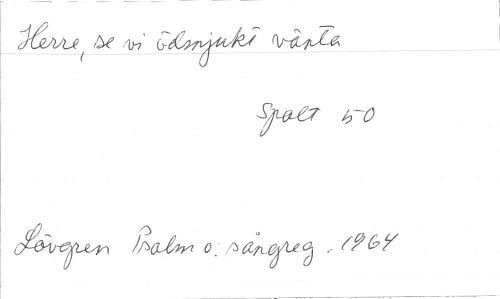 Herre, se vi ödmjukt vänta
Spalt 50
Lövgren Psalm o. sångreg. 1964